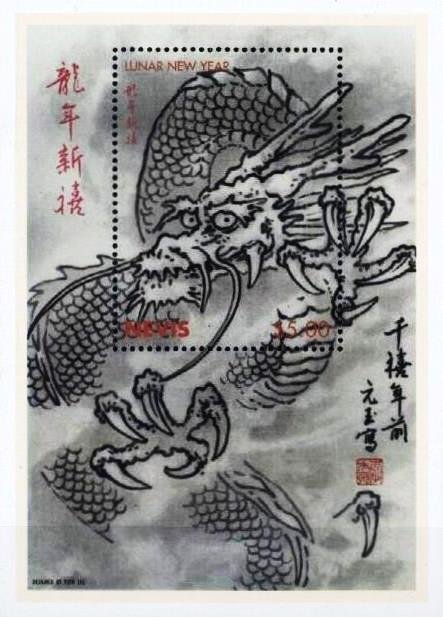 龍年新禧
LUNAR NEW YEAR
龍年新禧
NEVIS
$5.00
千禧年前
元玉寫